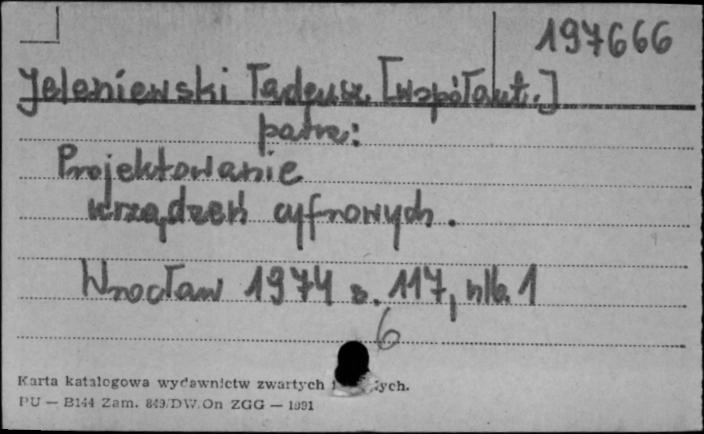 197666
Jeleniewski Tadeusz [współaut.]
patrz:
Projektowanie
urządzeń cyfrowych.
Wrocław 1974 s. 117, nlb. 1
6
Karta katalogowa wydawnictw zwartych
PU — B144 Zam. 849/DW/On ZGG — 1991